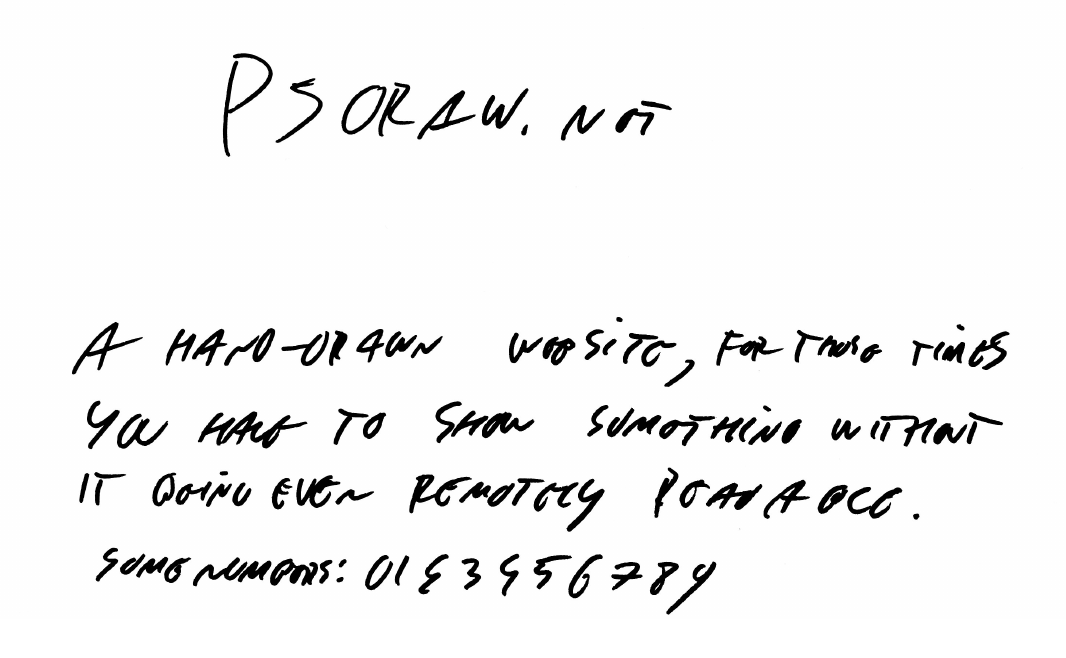 PSDRAW.NET
A HAND-DRAWN WEBSITE, FOR THOSE TIMES
YOU HAVE TO SHOW SOMETHING WITHOUT
IT BEING EVEN REMOTELY READABLE.
SOME NUMBERS: 0123456789